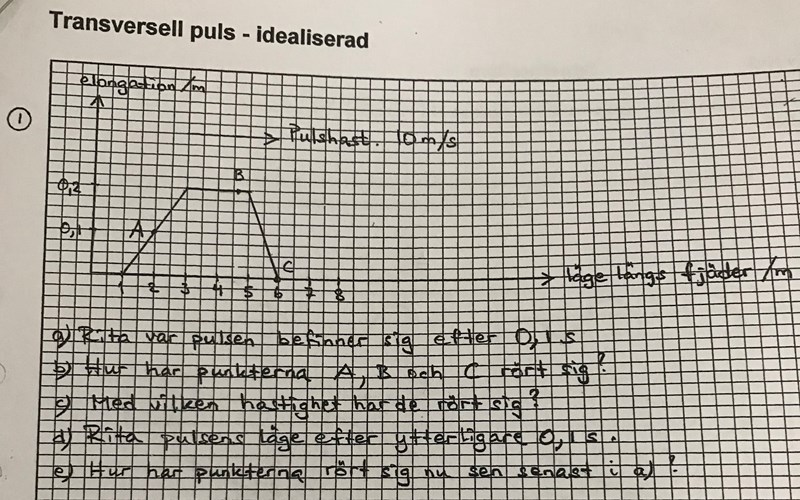 Transversell puls - idealiserad
elongation /m
1
Pulshast. 10 m/s
B
0,2
A
0,1
C
1 2 3 4 5 6 7 8
läge längs fjäder /m
a) Rita var pulsen befinner sig efter 0,1 s
b) Hur har punkterna A, B och C rört sig?
c) Med vilken hastighet har de rört sig?
d) Rita pulsens läge efter ytterligare 0,1 s.
e) Hur har punkterna rört sig nu sen senast i a)?